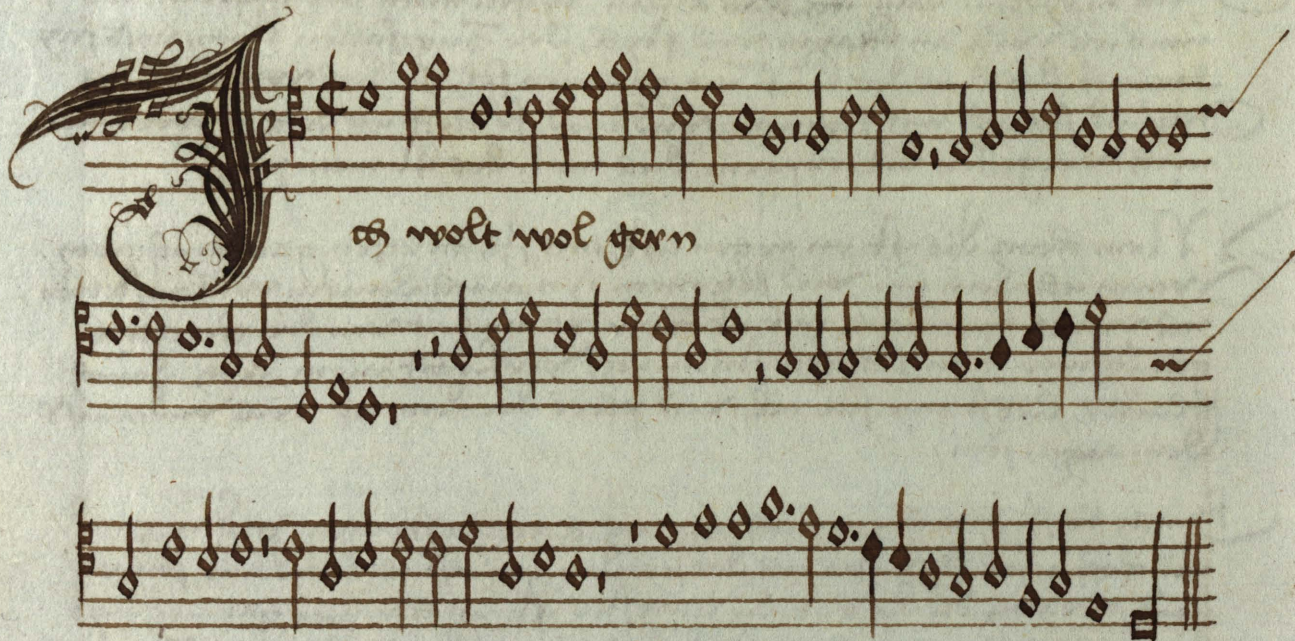 Jch wolt wol gern